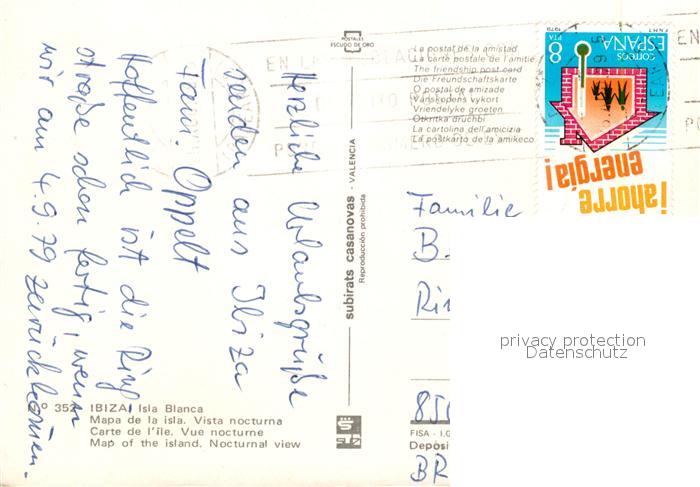 Herzliche Urlaubsgrüße
senden aus Ibiza
Fam. Oppelt
Hoffentlich ist die Ring-
straße schon fertig, wenn
wir am 4.9.79 zurückkommen.
Nº 352 IBIZA, Isla Blanca
Mapa de la isla. Vista nocturna
Carte de l'île. Vue nocturne
Map of the island. Nocturnal view
POSTALES
ESCUDO DE ORO
subirats casanovas - VALENCIA
Reproducción prohibida
La postal de la amistad
La carte postale de l'amitié
The friendship post card
Die Freundschaftskarte
O postal de amizade
Vänskapens vykort
Vriendelyke groeten
Otkritka druchbi
La cartolina dell'amicizia
La postkarto de la amikeco
8 PTA
correos
ESPAÑA
1979
¡ahorre,
energía!
EN
Familie
B.
Rin
850
FISA - I.G
Deposi
BR
privacy protection
Datenschutz